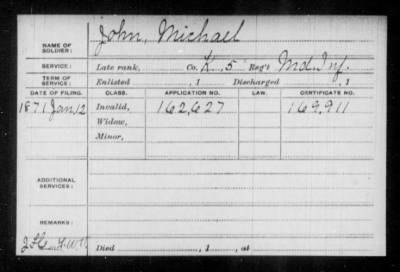 NAME OF SOLDIER: John, Michael
SERVICE: Late rank, Co. K, 5 Reg't Md. Inf.
TERM OF SERVICE: Enlisted , 1 Discharged , 1
DATE OF FILING. CLASS. APPLICATION NO. LAW. CERTIFICATE NO.
1871 Jan. 12 Invalid, 162,627 169,911
Widow,
Minor,
ADDITIONAL SERVICES:
REMARKS:
Died , 1 , at